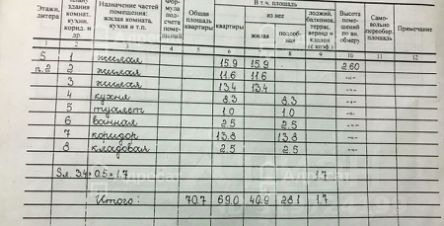 Этажи, литера
плану здания комнат, кухни, корид. и др.
Назначение частей помещения: жилая комната, кухня и т.п.
Фор- мула под- счета поме- 
Общая площадь квартиры
В т.ч. площадь
квартиры
из нее
жилая
подсоб- ная
лоджий, балконов, террас, веранд и кладов (с коэф.)
Высота поме- щений по вн. обмеру.
Само- вольно переобор. площадь
Примечание
1 2 3 4 5 6 7 8 9 10 11 12
5 1 жилая 15.9 15.9 2.60
п.2 2 жилая 11.6 11.6 -"-
3 жилая 13.4 13.4 -"-
4 кухня 8.3 8.3 -"-
5 туалет 1.0 1.0 -"-
6 ванная 2.5 2.5 -"-
7 коридор 13.8 13.8 -"-
8 кладовая 2.5 2.5 -"-
Sл. 3.4 × 0.5 = 1.7 1.7
Итого: 70.7 69.0 40.9 28.1 1.7